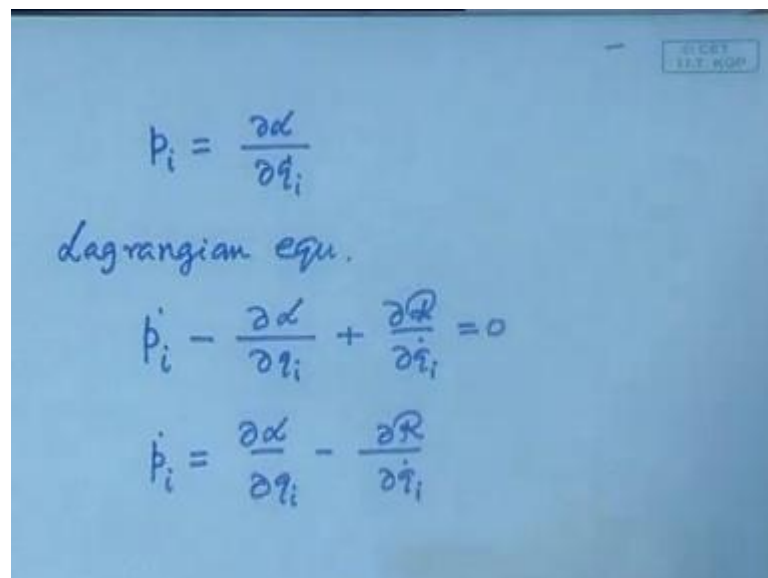 © CET
I.I.T. KGP
pᵢ = ∂ℒ/∂q̇ᵢ
Lagrangian equ.
ṗᵢ − ∂ℒ/∂qᵢ + ∂ℛ/∂q̇ᵢ = 0
ṗᵢ = ∂ℒ/∂qᵢ − ∂ℛ/∂q̇ᵢ